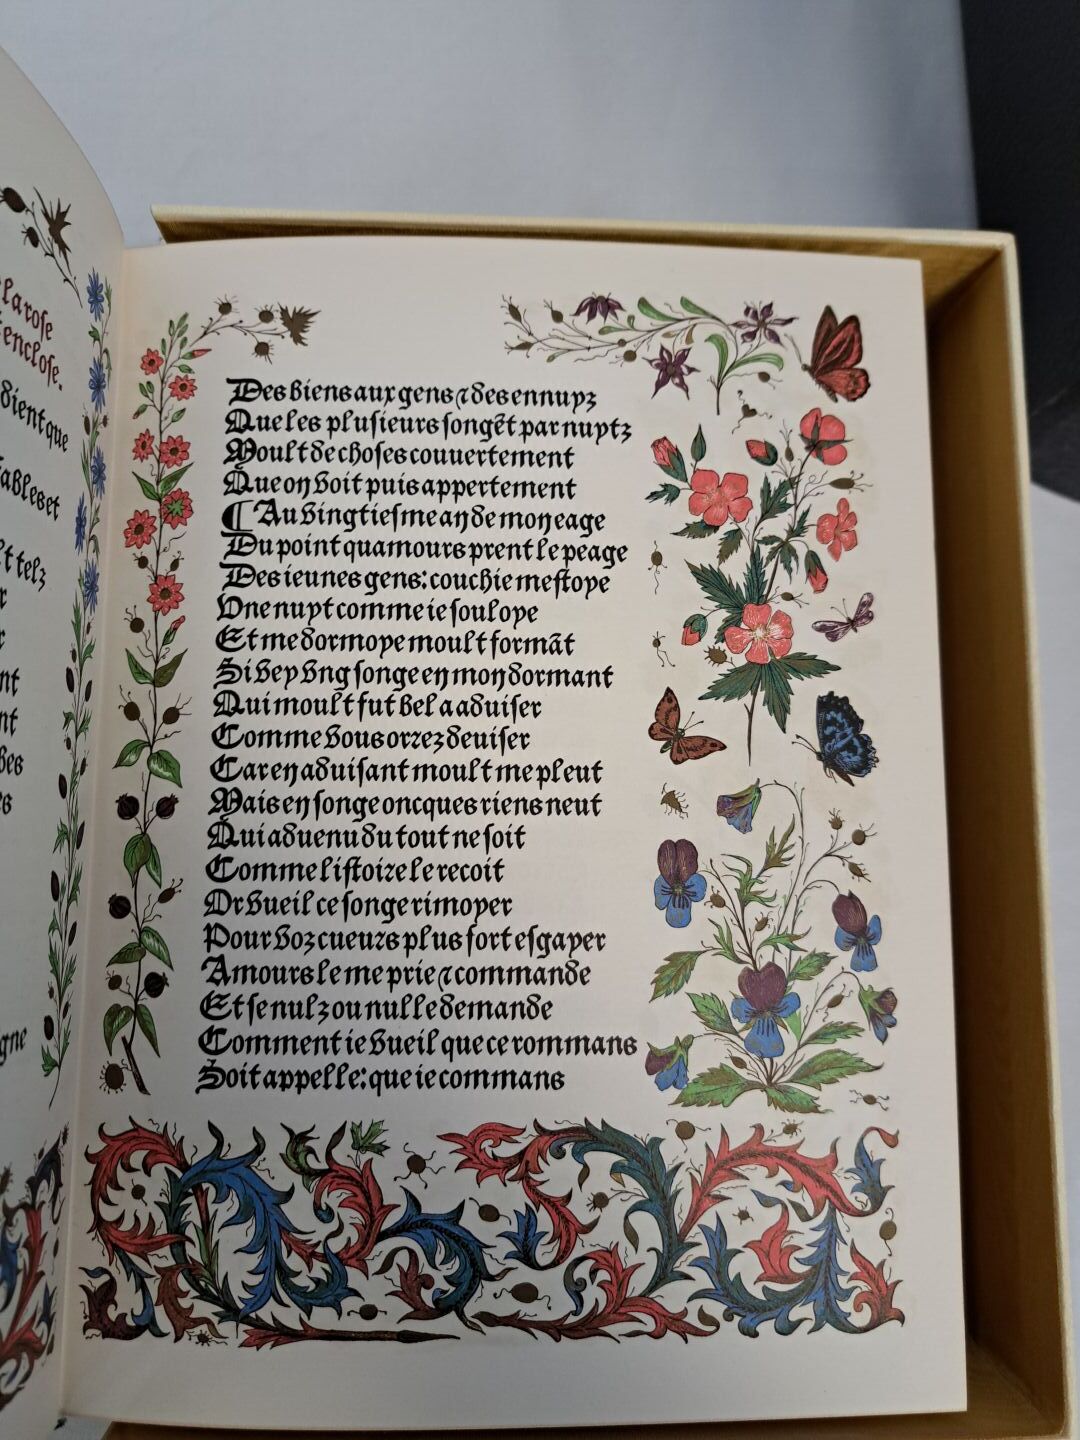 la rose
enclose.
dient que
fables et
t telz
r
r
nt
nt
bes
es
gne
Des biens aux gens ⁊ des ennuyz
Que les plusieurs songẽt par nuytz
Moult de choses couuertement
Que on voit puis appertement
¶ Au vingtiesme an de mon eage
Du point quamours prent le peage
Des ieunes gens: couchie mestoye
Vne nuyt comme ie souloye
Et me dormoye moult formãt
Si vey vng songe en mon dormant
Qui moult fut bel a aduiser
Comme vous orrez deuiser
Car en aduisant moult me pleut
Mais en songe oncques riens neut
Qui aduenu du tout ne soit
Comme listoire le recoit
Or vueil ce songe rimoyer
Pour voz cueurs plus fort esgayer
Amours le me prie ⁊ commande
Et se nulz ou nulle demande
Comment ie vueil que ce rommans
Soit appelle: que ie commans